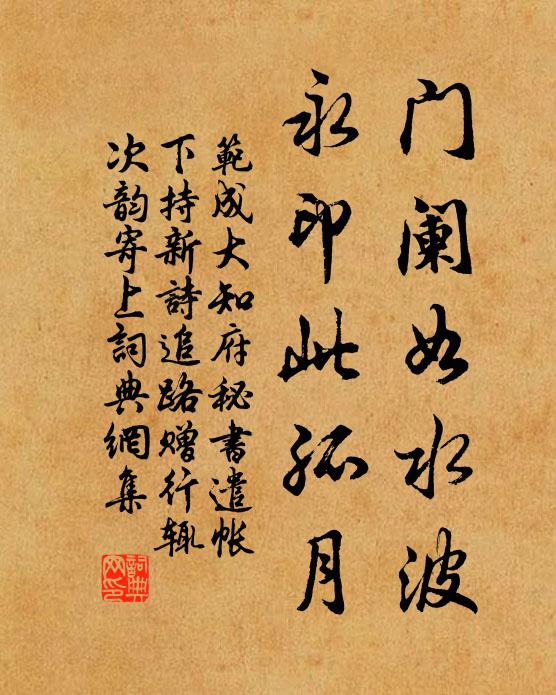 门阑如水波
永印此孤月
範成大知府秘書遣帐
下持新詩追路赠行辄
次韵寄上詞典網集
詞典网印